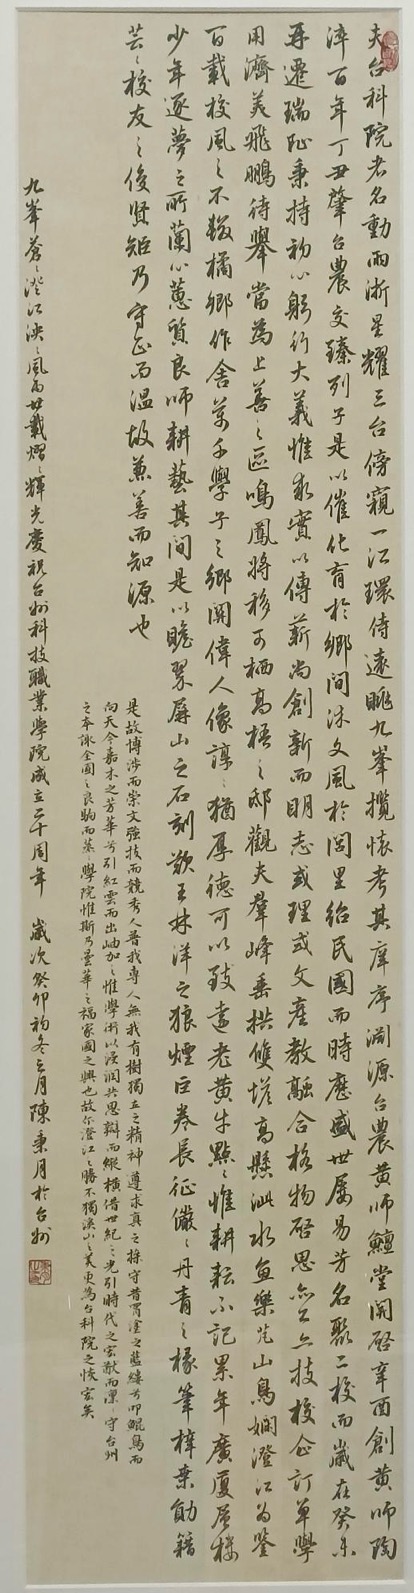 夫台科院者名動两浙星耀三台傍窺一江環侍遠眺九峯攬懷考其庠序淵源台農黄師鱣堂開啓辛酉創黄師陶
淬百年丁丑肇台農交臻列于是以催化育於鄉間沐文風於閭里紿民國而時應盛世屡易芳名聚二校而歲在癸未
再遷瑞阯秉持初心躬行大義惟求實以傳薪尚創新而明志或理或文産教融合格物啓思亦工亦技校企訂单學
用濟美飛鵬待舉當為上善之區鳴鳳將移可栖高梧之邸觀夫羣峰垂拱雙塔高懸泚水鱼樂山鳥嫻澄江为鑒
百載校風之不輟橘鄉作舍萬千學子之鄉關偉人像諄〻猶厚德可以致遠老黄牛點〻惟耕耘不記累年廣厦层楼
少年逐夢之所蘭心蕙質良師耕藝其間是以瞻翠屏山之石刻歎王林洋之狼煙巨卷長征儼〻丹青之椽筆梓棄勛籍
芸〻校友之俊賢矩乃守正而温故兼善而知源也
是故博涉而崇文强技而競秀人普我專人無我有樹獨立之精神遵求真之操守昔胃塗之藍縷兮叩鲲鳥而
向天今嘉木之芳華兮引紅雲而出岫加之惟學術以浸润共思辯而縱横借世紀之光引時代之宏猷而凜〻守台州
之本詠全國之良駒而蒸〻學院惟斯乃曇華之福家國之興也故尔澄江之勝不獨溪山之美更為台科院之恢宏矣
九峯蒼〻澄江泱〻風雨廿載熠〻輝光慶祝台州科技職業學院成立二十周年 歲次癸卯初冬之月陳秉月於台州